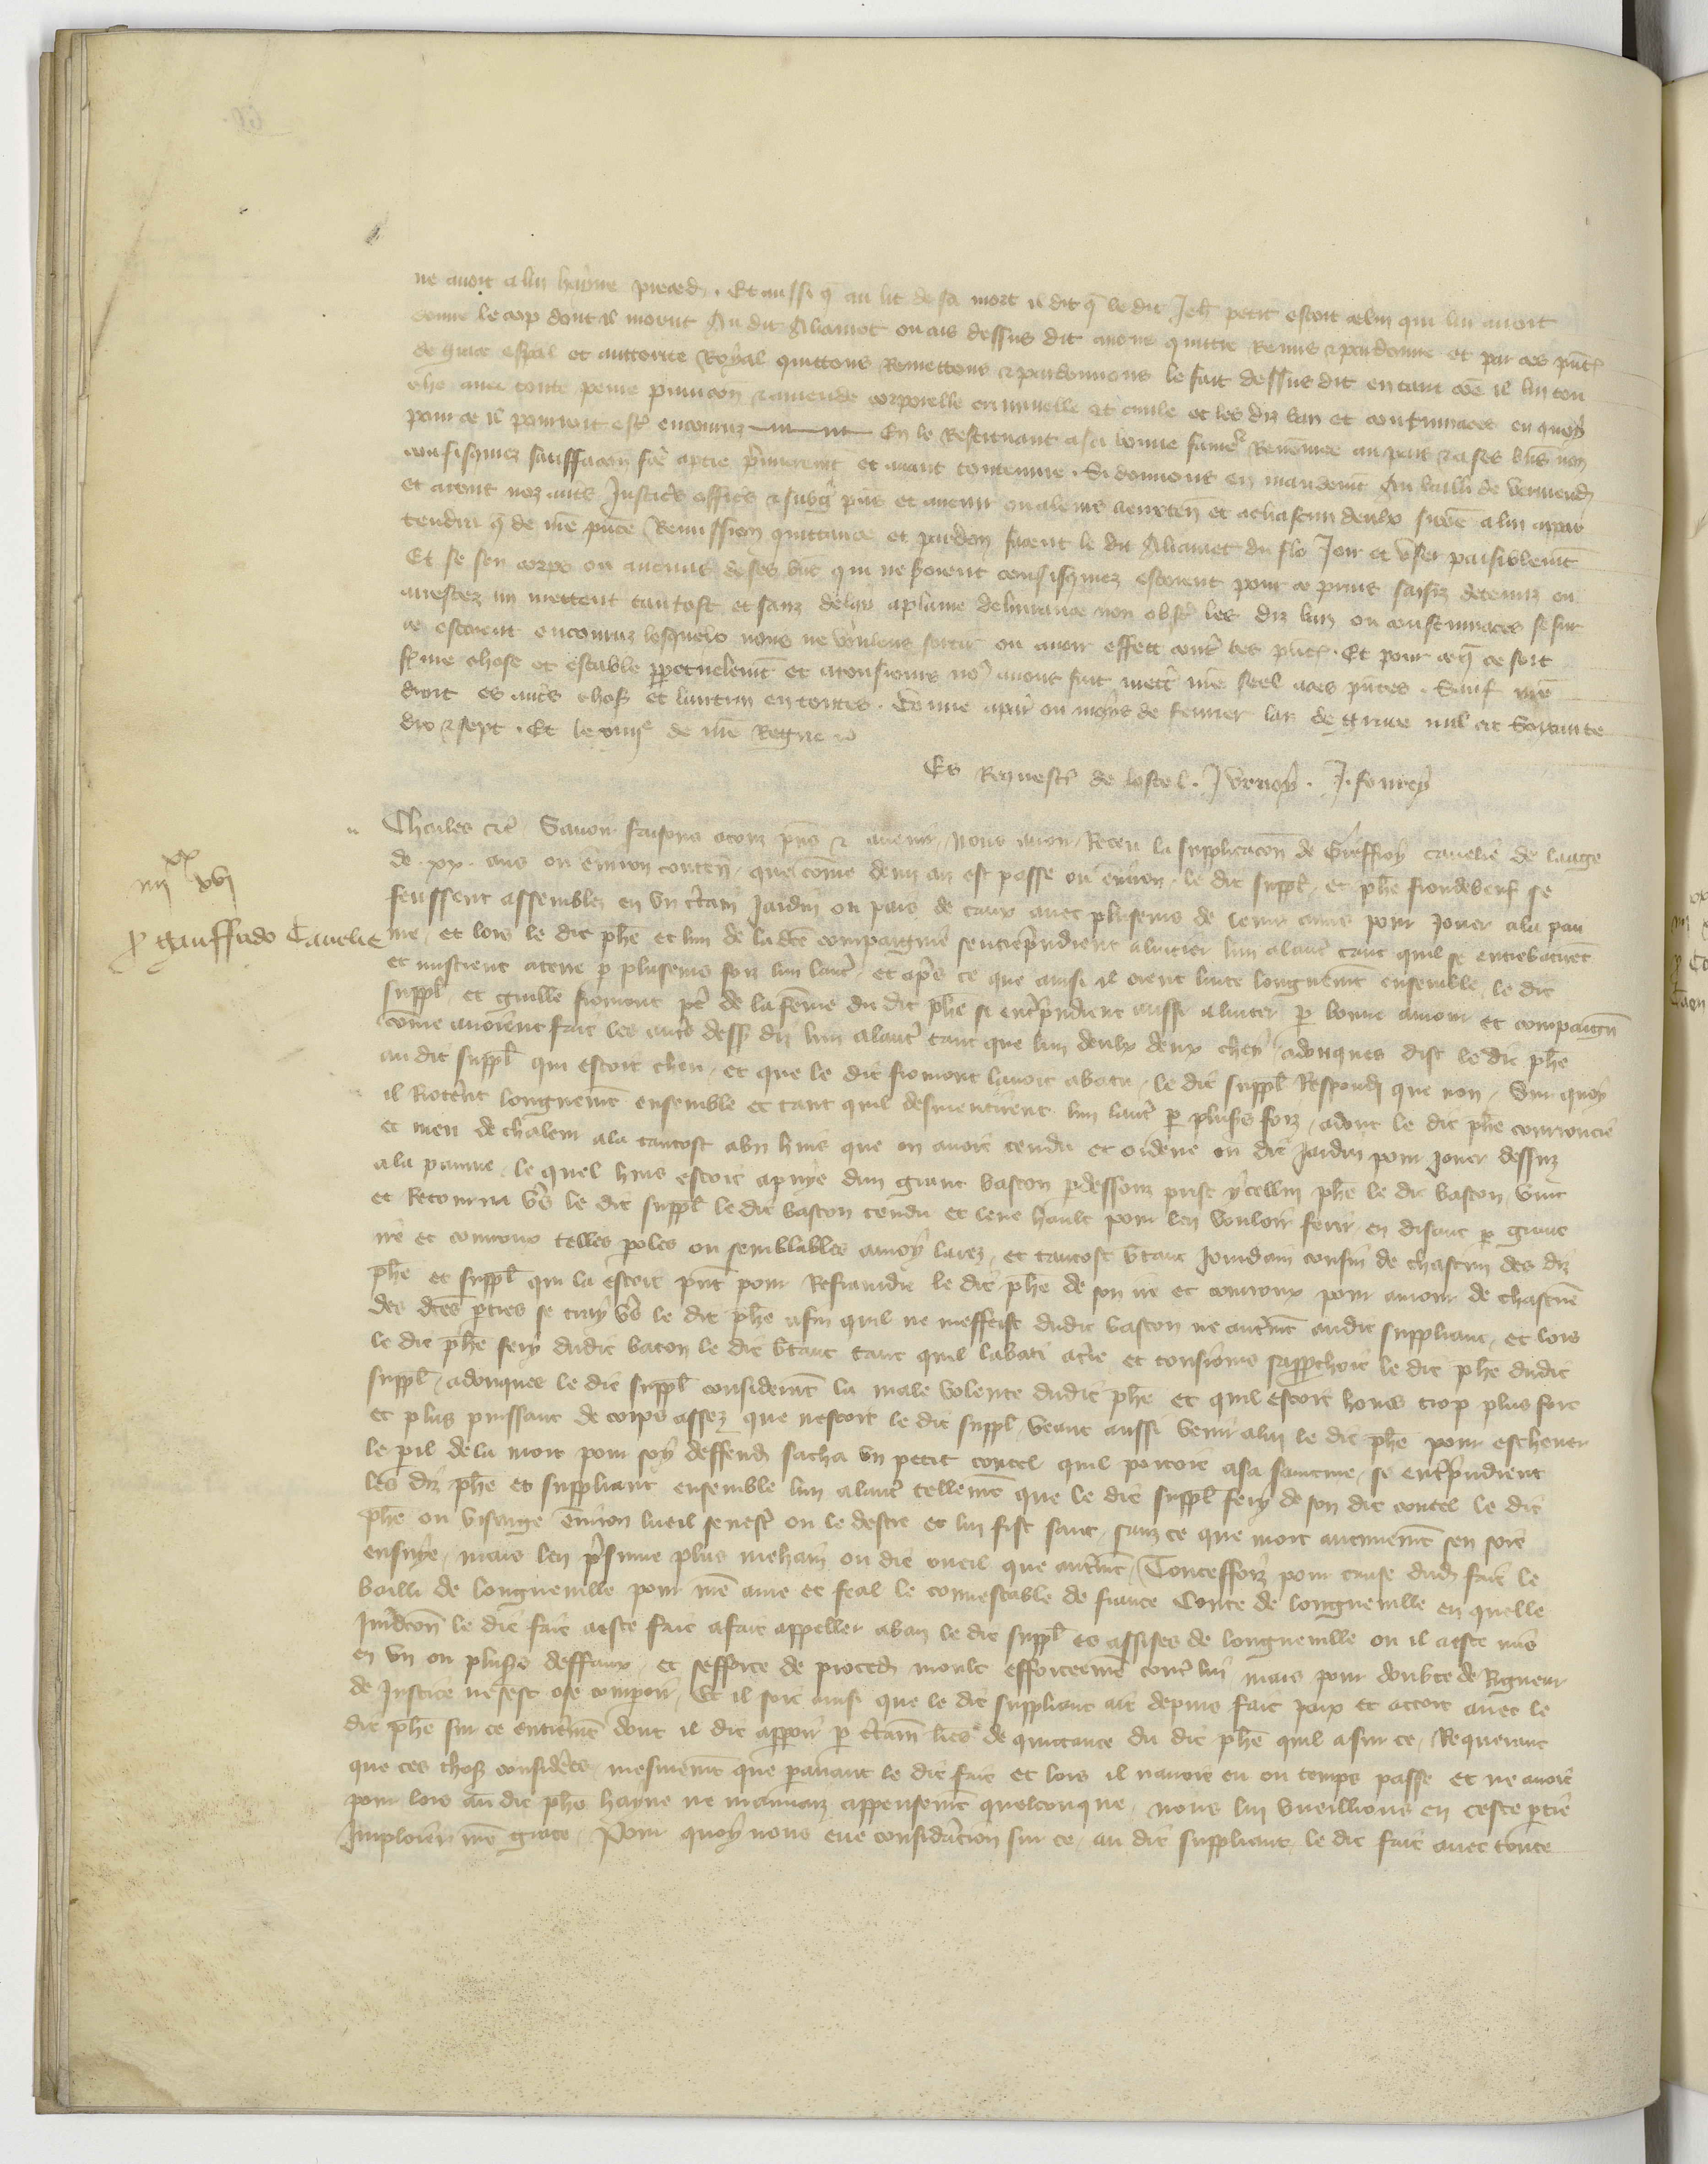 ne avoit a lui hayne preced. Et aussi q̃ au lit de sa mort il dit q̃ le dit Jeh̃ petit estoit celui qui lui avoit
donne le cop dont il mourut Au dit ou cas dessus dit avons quitte Remis & pardonne et par ces p̃nt̃
de grace esp̃al et auttorite Royal quittons Remettons & pardonnons le fait dessus dit en tant cõe il lui tou
che avec toute peine punicõn & amende corporelle criminelle et civile et les diz ban et contumaces en quoy
pour ce il pourroit est̃ encouruz En le Restituant a sa bonne fame Renõmee au pais & a ses biẽs non
confisquez satiffacõn fc̃e a p̃tie p̃mierem̃t et avant toute euvre. Si donnons en mandem̃t Au bailli de vermend̃
et a touz noz aut̃s Justic̃s offic̃s & subg̃ p̃ns et avenir ou a leurs lieuxteñ et a chascun deulx si cõe a lui appar
tendra q̃ de n̄re p̃nte Remission quittance et pardon facent le dit du flo Joir et user paisiblem̃t
Et se son corps ou aucuns de ses biẽs qui ne soient confisquez estoient pour ce prins saisiz detenuz ou
arrestez lui mettent tantost et sanz delay a plaine delivrance non obst̃ les diz ban ou contumaces se sur
ce estoient encouruz lesquelx nous ne voulons sortir ou avoir effect cont̃ ces p̃nt̃. Et pour ce q̃ ce soit
ferme chose et estable p̃petuelem̃t et a tousiours no᷒ avons fait mett̃ n̄re seel a ces p̃ntes. Sauf n̄re
droit es aut̃s chos̃ et lautrui en toutes. Donne a par̃ ou moys de fevrier lan de grace mil ccc Soixante
dix & sept. Et le xiiij^e de n̄re Regne
Es Request̃ de lostel. J vernoy. J. fourcy
Charles etc̃. Savoir faisons a touz p̃ns & avenir, Nous avons Receu la supplicacõn de Gieffroy cavelie de laage
iiij^xx xvj
de xx. ans ou environ conten̄, que cõme demi an est passe ou environ le dit suppl̃. et ph̃e se
feussent assemblez en un c̃tain Jardin ou pais de caux avec plusieurs de leurs amis pour Jouer a la pau
p̃ Gauffrido Cavelie
me, et lors le dit ph̃e et lun de la dc̃e compaignie sentrep̃ndrent a luitier lun a laut̃ tant quil se entrebatirẽt
et misrent a terre p̃ plusieurs foiz lun laut̃, et ap̃s ce que ainsi il orent luite longuem̃t ensemble, le dit
suppl̃. et guill̃e fromont de la fẽme du dit ph̃e se ent̃p̃ndrent aussi a luiter p̃ bonne amour et compaign̄
cõme avoient fait les aut̃s dess̃ diz lun a laut̃ tant que lun deulx deux chey, adonques dist le dit ph̃e
au dit suppl̃. qui estoit cheu, et que le dit fromont lavoit abatu, le dit suppl̃ Respondi que non, Sur quoy
il Rioterẽt longuem̃t ensemble et tant quil desmentirent lun laut̃ p̃ plus̃s foiz, adont le dit ph̃e courroucie
et meu de chaleur ala tantost a un huis que on avoit tendu et ordene ou dit Jardin pour Jouer dessuz
a la paume, le quel huis estoit apuye dun grant baston p̃dessouz prist ycellui ph̃e le dit baston, vint
et Retourna v̄s le dit suppl̃ le dit baston tendu et leve hault pour len vouloir ferir en disant p̃ grant
ire et courroux telles p̃oles ou semblables a moy laiez, et tantost b̃tant Jourdain cousin de chascun des diz
ph̃e et suppl̃ qui la estoit p̃nt pour Refraindre le dit ph̃e de son ire et courroux pour amour de chascune
des dc̃es p̃ties se tray v̄s le dit ph̃e afin quil ne meffeist dudit baston ne aut̃m̃t au dit suppliant, et lors
le dit ph̃e fery dudit baton le dit b̃tant tant quil labati a t̃re et tousiours sapprochoit le dit ph̃e dudit
suppl̃, adonques le dit suppl̃ considerãt la male volente dudit ph̃e et quil estoit homs trop plus fort
et plus puissant de corps assez que nestoit le dit suppl̃, veant aussi venir a lui le dit ph̃e pour eschever
le p̃il de la mort pour soy deffend̃ sacha un petit coutel quil portoit a sa sainture, se ent̃p̃ndrent
les diz ph̃e et suppliant ensemble lun a laut̃ tellem̃t que le dit suppl̃ fery de son dit coutel le dit
ph̃e ou visaige environ lueil senest̃ ou le destre et lui fist sanc, sanz ce que mort aucunem̃t sen soit
ensuye, mais len p̃sume plus mehain ou dit oueil que aut̃m̃t, Toutesfoiz pour cause dud̃ fait le
bailli de longueville pour n̄re ame et feal le connestable de france Conte de longueville en quelle
Jurid̃cõn le dit fait a este fait a fait appeller a ban le dit suppl̃ es assises de longueville ou il a este mis
en un ou plus̃s deffaux, et sefforce de proced̃ moult efforceem̃t cont̃ lui mais pour doubte de Rigueur
de Justice ne sest ose comparoir, Et il soit ainsi que le dit suppliant ait depuis fait paix et accort avec le
dit ph̃e sur ce entierem̃t dont il dit apparoir p̃ c̃taines lr̃es de quittance du dit ph̃e quil a sur ce, Requerant
que ces chos̃ considerees mesmem̃t que p̃avant le dit fait et lors il navoit eu ou temps passe et ne avoit
pour lors au dit ph̃e hayne ne mauvaiz appensem̃t quelconque, nous lui vueillions en ceste p̃tie
Implorer n̄re grace, Pour quoy nous eue consideracion sur ce, au dit suppliant le dit fait avec toute